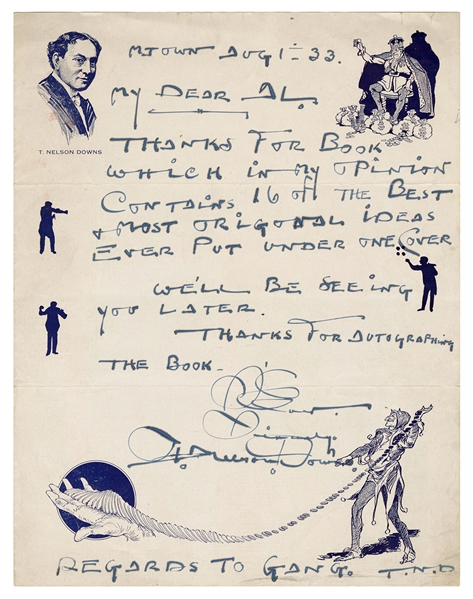 MTOWN AUG 1 - 33.
T. NELSON DOWNS
MY DEAR AL.
THANKS FOR BOOK
WHICH IN MY OPINION
CONTAINS 16 OF THE BEST
& MOST ORIGONAL IDEAS
EVER PUT UNDER ONE COVER
WE'LL BE SEEING
YOU LATER.
THANKS FOR AUTOGRAPHING
THE BOOK -
Sincerely
T. Nelson Downs
REGARDS TO GANG. T.N.D